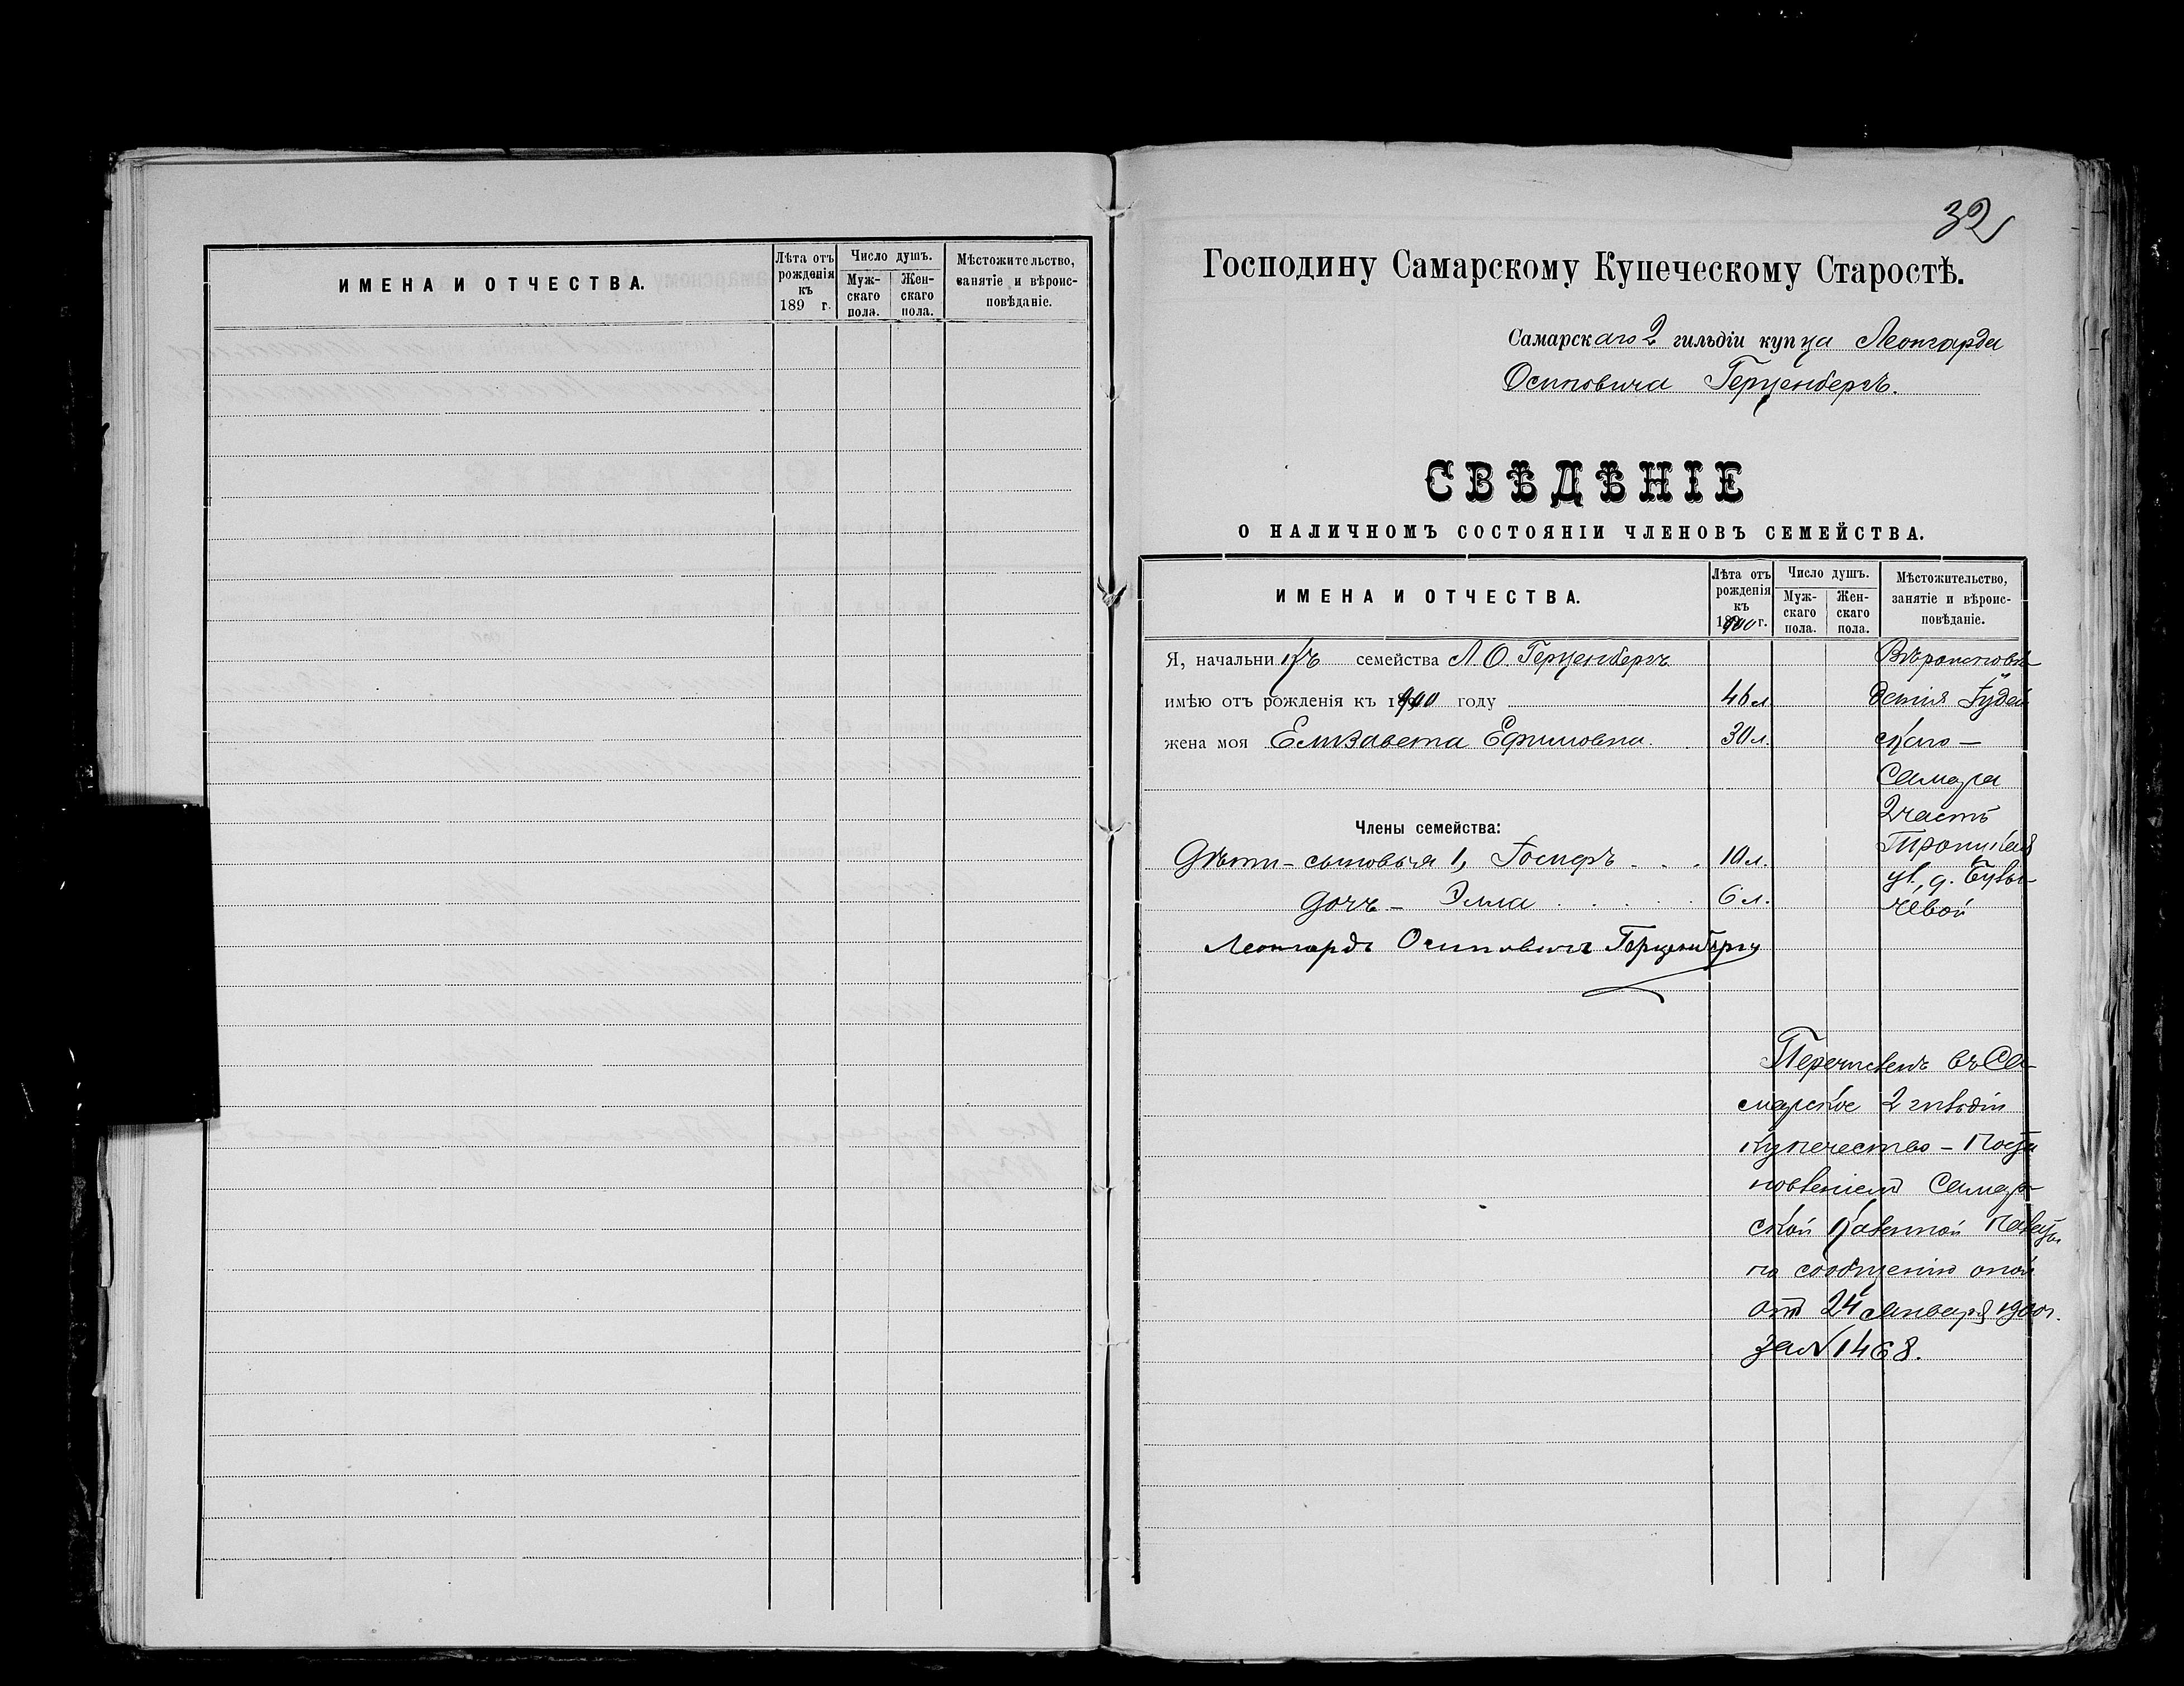 ИМЕНА И ОТЧЕСТВА.
Лѣта отъ рожденія къ 189 г.
Число душъ.
Муж- скаго пола.
Жен- скаго пола.
Мѣстожительство, занятіе и вѣроис- повѣданіе.
32
Господину Самарскому Купеческому Старостѣ.
Самарскаго 2 гильдіи купца Леонгарда
Осиповича Герценбергъ.
СВѢДѢНІЕ
О НАЛИЧНОМЪ СОСТОЯНІИ ЧЛЕНОВЪ СЕМЕЙСТВА.
ИМЕНА И ОТЧЕСТВА.
Лѣта отъ рожденія къ 1900 г.
Число душъ.
Муж- скаго пола.
Жен- скаго пола.
Мѣстожительство, занятіе и вѣроис- повѣданіе.
Я, начальникъ семейства Л. О. Герценбергъ
имѣю отъ рожденія къ 1900 году 46 л.
жена моя Елизавета Ефимовна. 30 л.
Члены семейства:
Дѣти - сыновья 1, . . . 10 л.
дочь - Элла . . . . . 6 л.
Леонгардъ Осиповичъ Герценбергъ
Вѣроисповѣ-
данія Іудей
скаго —
Самара
2 часть
Троицкая
ул., д.
чевой
Перечисленъ въ Са-
марское 2 гильдіи
купечество — Поста
новленіем Самар-
ской Казенной Палаты
по сообщенію оной
отъ 24 Января 1900 г.
за № 1468.